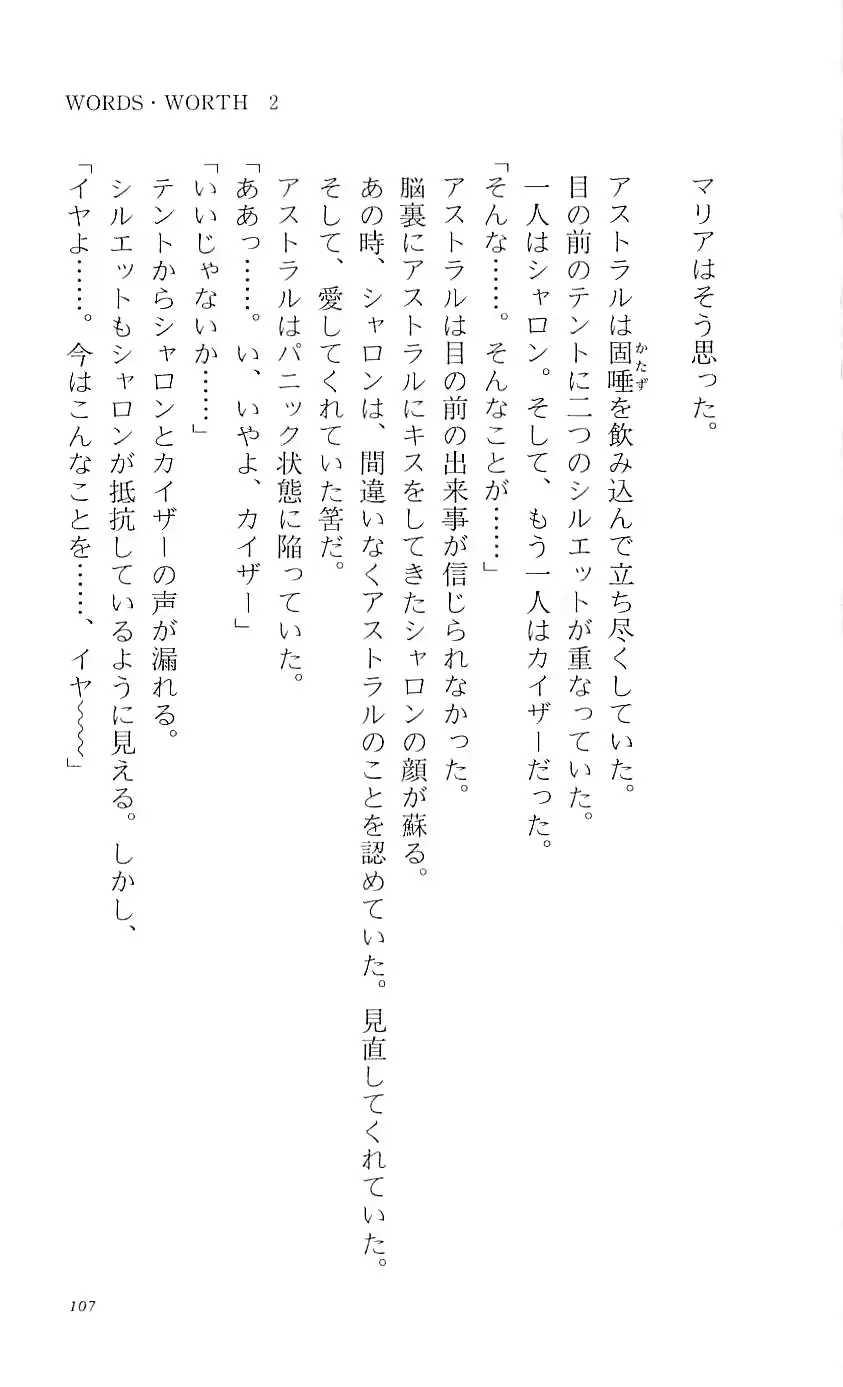 WORDS・WORTH 2
マリアはそう思った。
アストラルは固唾を飲み込んで立ち尽くしていた。
かたず
目の前のテントに二つのシルエットが重なっていた。
一人はシャロン。そして、もう一人はカイザーだった。
「そんな……。そんなことが……」
アストラルは目の前の出来事が信じられなかった。
脳裏にアストラルにキスをしてきたシャロンの顔が蘇る。
あの時、シャロンは、間違いなくアストラルのことを認めていた。見直してくれていた。
そして、愛してくれていた筈だ。
アストラルはパニック状態に陥っていた。
「ああっ……。い、いやよ、カイザー」
「いいじゃないか……」
テントからシャロンとカイザーの声が漏れる。
シルエットもシャロンが抵抗しているように見える。しかし、
「イヤよ……。今はこんなことを……、イヤ～～～」
107